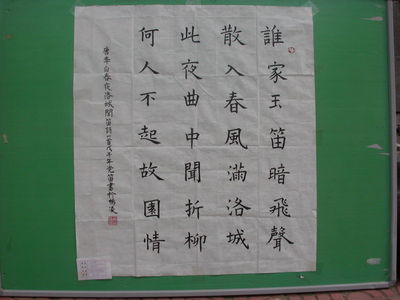 誰家玉笛暗飛聲
散入春風滿洛城
此夜曲中聞折柳
何人不起故園情
唐李白春夜洛城聞笛詩一首戊子年